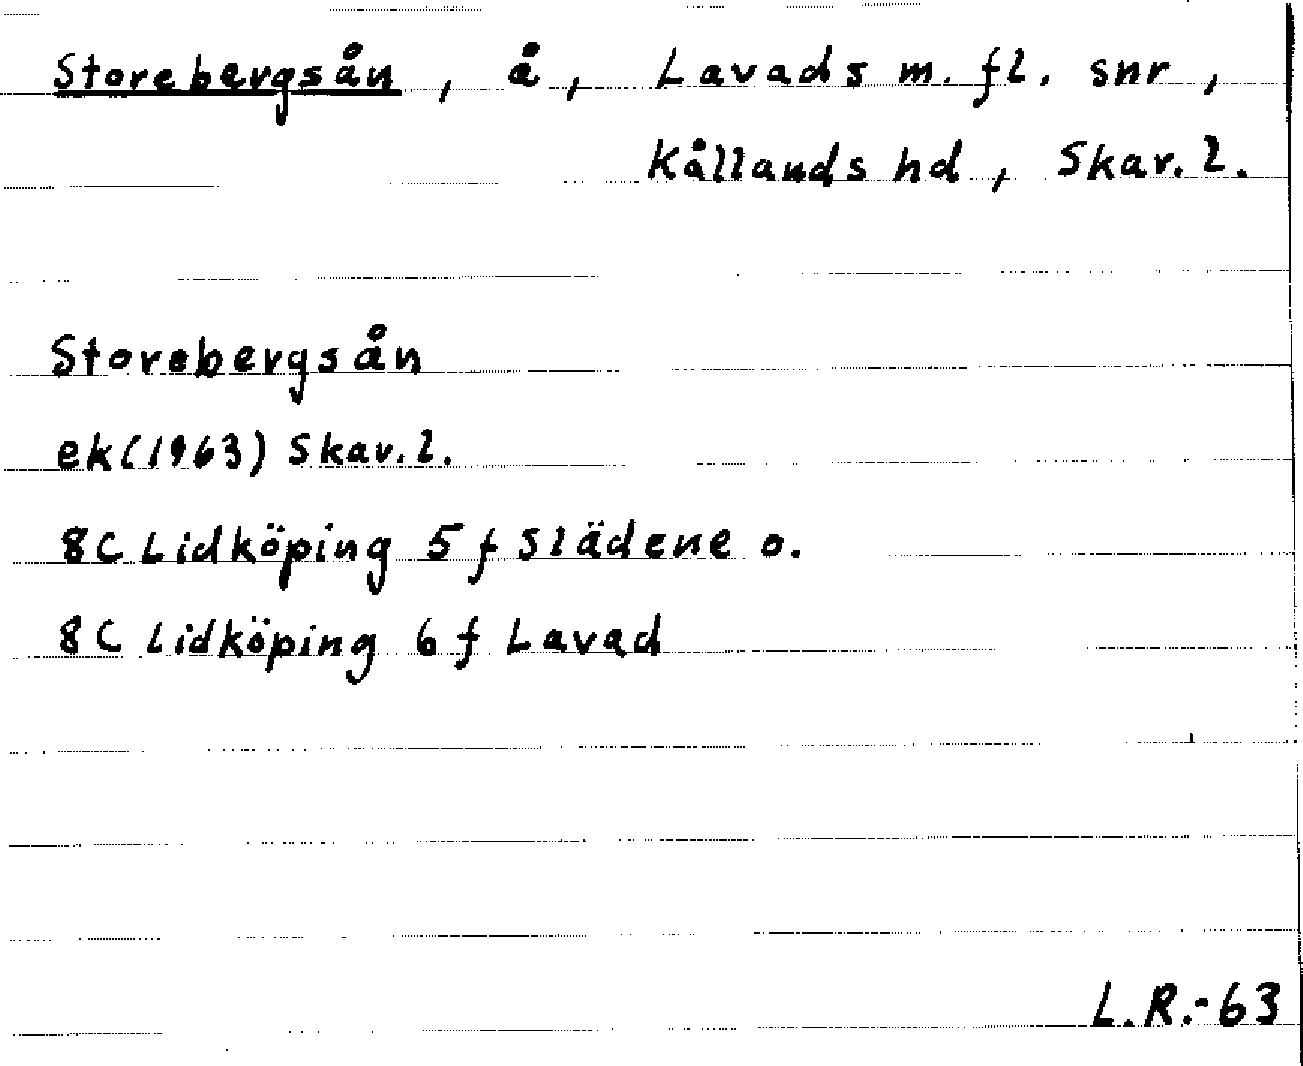 Storebergsån, å, Lavads m. fl. snr,
Kållands hd, Skar. l.
Storebergsån
ek (1963) Skar. l.
8C Lidköping 5 f Slädene o.
8C Lidköping 6 f Lavad
L.R.-63